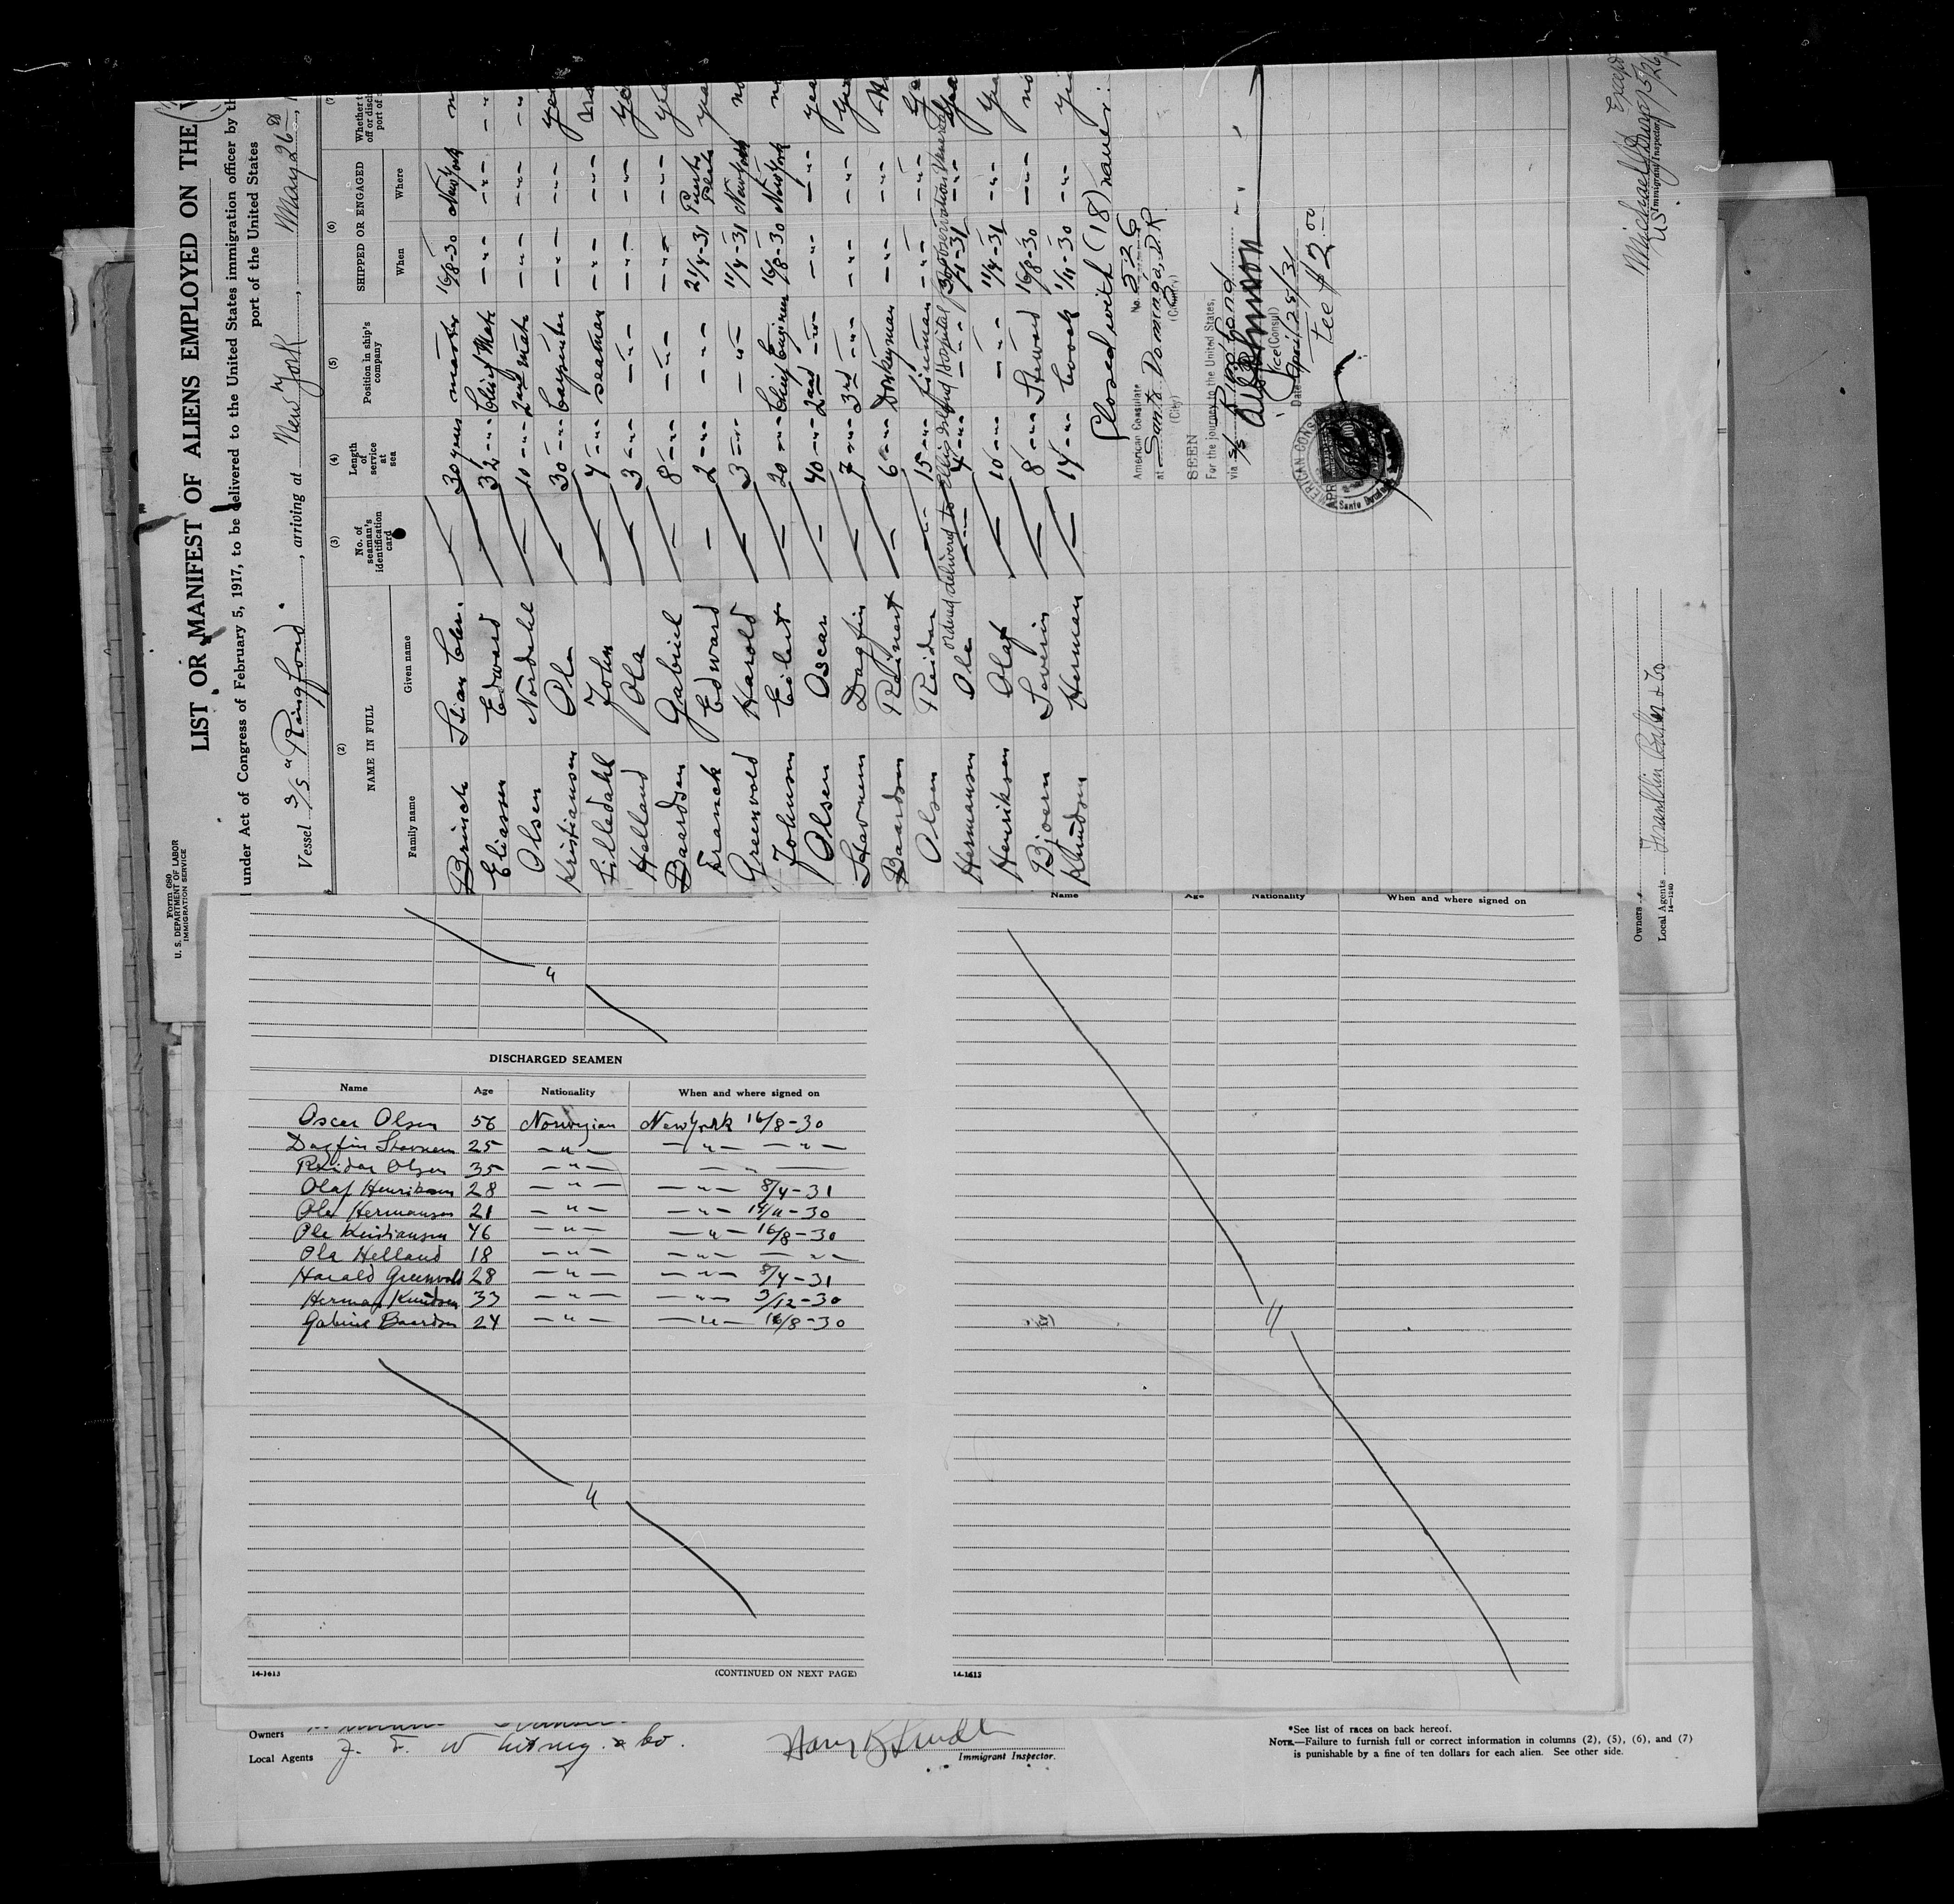 Form 680
U. S. DEPARTMENT OF LABOR
IMMIGRATION SERVICE
LIST OR MANIFEST OF ALIENS EMPLOYED ON THE
under Act of Congress of February 5, 1917, to be delivered to the United States immigration officer by th
port of the United States
Vessel S/S "Ringfond", arriving at New York, May 26
(2) (3) (4) (5) (6) (7
NAME IN FULL
Family name Given name
No. of seaman's identification card
Length of service at sea
Position in ship's company
SHIPPED OR ENGAGED
When Where
Whether t off or disch port of
Brinch 30 years master 16/8-30 New York
Eliassen Edward 32 -"- Chief Mate -"- -"- -"-
Olsen Nordahl 10 -"- 2nd Mate -"- -"- -"-
Kristiansen Ola 30 -"- Carpenter -"- -"- yes
Lilledahl John 4 -"- seaman -"- -"-
Helland Ola 3 -"- -"- -"- -"- yes
Baardsen Gabriel 8 -"- -"- -"- -"- yes
Franck Edward 2 -"- -"- 21/4-31 Puerto Plata yes
Greenvold Harold 3 -"- -"- 11/4-31 New York no
Johnsen Eilert 20 -"- Chief Engineer 16/8-30 New York no
Olsen Oscar 40 -"- 2nd -"- -"- -"- yes
Stavnem Dagfin 7 -"- 3rd -"- -"- -"- yes
Baardsen Reinert 6 -"- Donkeyman -"- -"-
Olsen Reidar 15 -"- Fireman -"- -"-
Ordered delivery to Ellis Island Hospital for observation Venereal
Hermansen Ole 4 -"- -"- -"- yes
Henriksen Olaf 10 -"- -"- 11/4-31 -"- yes
Bjoern Severin 8 -"- Steward 16/8-30 -"- no
Knudsen Herman 14 -"- Cook 1/11-30 -"- yes
Closed with (18) names:
American Consulate No. 526
at Santo Domingo, D.R.
(City) (Country)
SEEN
For the journey to the United States,
via S/S Ringfond
Vice (Consul)
Date April 28/31
Fee $2.00
AMERICAN CONS
Santo Domingo
Michael
US Immigrant Inspector
5/26
Owners
Local Agents Franklin Baker & Co
14—1240
Name Age Nationality When and where signed on
DISCHARGED SEAMEN
Name Age Nationality When and where signed on
Oscar Olsen 56 Norwegian New York 16/8-30
Dagfin Stavnem 25 -"- -"- -"-
Reidar Olsen 35 -"- — " —
Olaf Henriksen 28 -"- -"- 8/4-31
Ole Hermansen 21 -"- -"- 14/11-30
Ole Kristiansen 46 -"- -"- 16/8-30
Ola Helland 18 -"- -"- -"-
Harald Greenvold 28 -"- -"- 8/4-31
Herman Knudsen 33 -"- -"- 3/12-30
Gabriel Baardsen 24 -"- -"- 16/8-30
14-1613 (CONTINUED ON NEXT PAGE) 14-1613
Owners
Local Agents J. F. Whitney & Co.
Immigrant Inspector.
*See list of races on back hereof.
NOTE.—Failure to furnish full or correct information in columns (2), (5), (6), and (7)
is punishable by a fine of ten dollars for each alien. See other side.